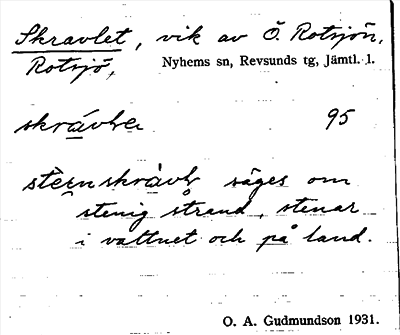 Skravlet, vik av Ö. Rotsjön,
Rotsjö, Nyhems sn, Revsunds tg, Jämtl. l.
skrávle 95
stein skràvl säges om
stenig strand, stenar
i vattnet och på land.
O. A. Gudmundson 1931.